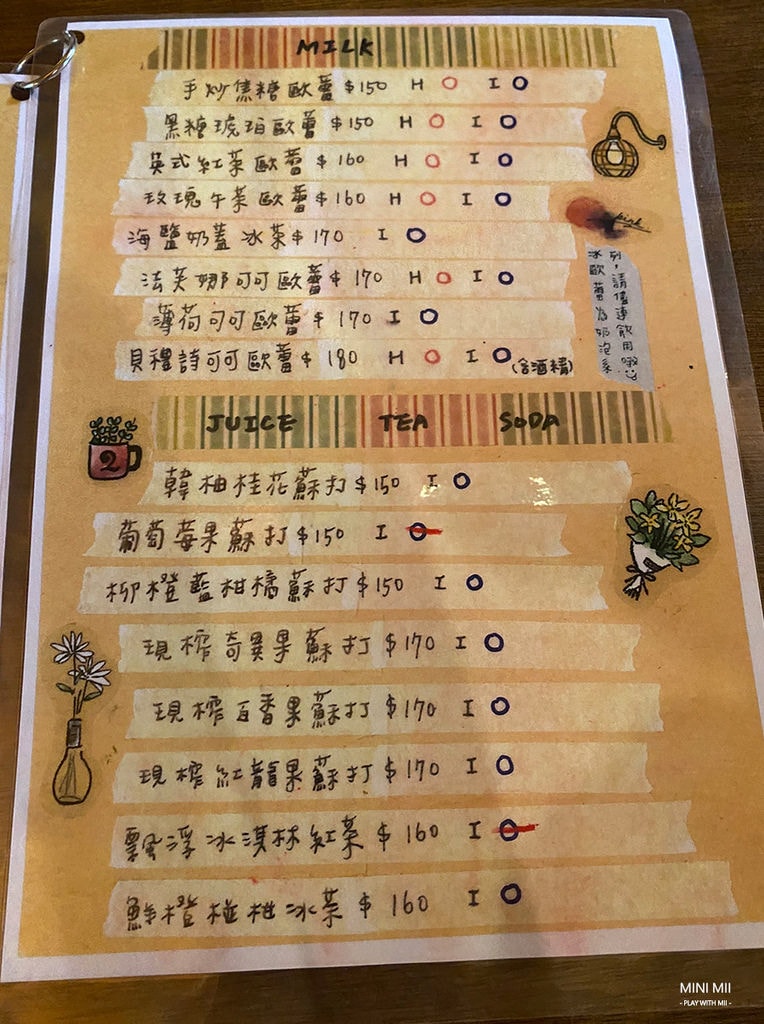 MILK
手炒焦糖歐蕾 $150 H O I O
黑糖琥珀歐蕾 $150 H O I O
英式紅茶歐蕾 $160 H O I O
玫瑰午茶歐蕾 $160 H O I O
海鹽奶蓋冰茶 $170 I O
法芙娜可可歐蕾 $170 H O I O
薄荷可可歐蕾 $170 I O
貝禮詩可可歐蕾 $180 H O I O (含酒精)
冰歐蕾為奶泡系
列，請儘速飲用哦
JUICE TEA SODA
2
韓柚桂花蘇打 $150 I O
葡萄莓果蘇打 $150 I O
柳橙藍柑橘蘇打 $150 I O
現榨奇異果蘇打 $170 I O
現榨百香果蘇打 $170 I O
現榨紅龍果蘇打 $170 I O
飄浮冰淇林紅茶 $160 I O
鮮橙椪柑冰茶 $160 I O
MINI MII
- PLAY WITH MII -